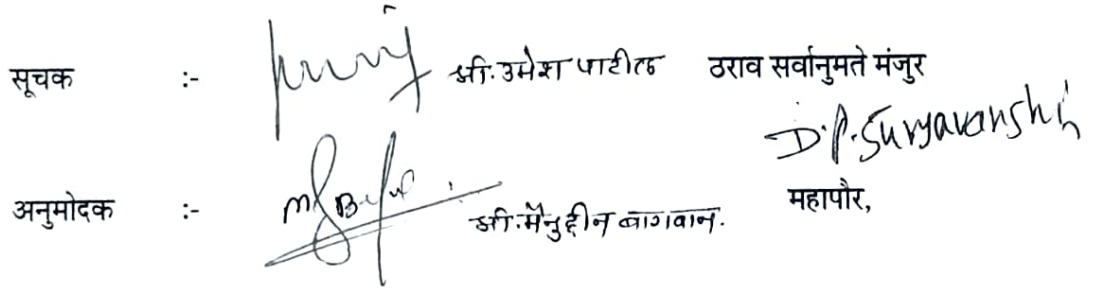 सूचक :- श्री. उमेश पाटील ठराव सर्वानुमते मंजुर
D.P. Suryavanshi
अनुमोदक :- श्री. मैनुद्दीन बागवान. महापौर,